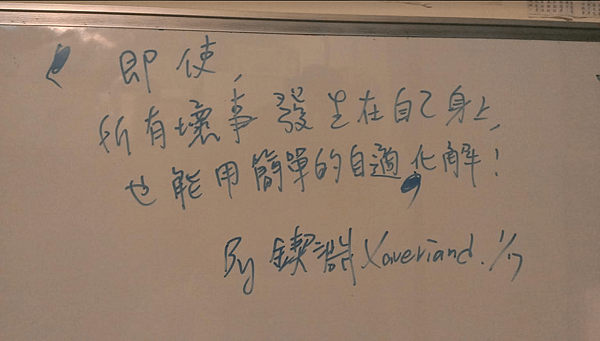 即使,
所有壞事發生在自己身上,
也能用簡單的自適,化解!
By 鍥淵 Xaveriand. 1/17